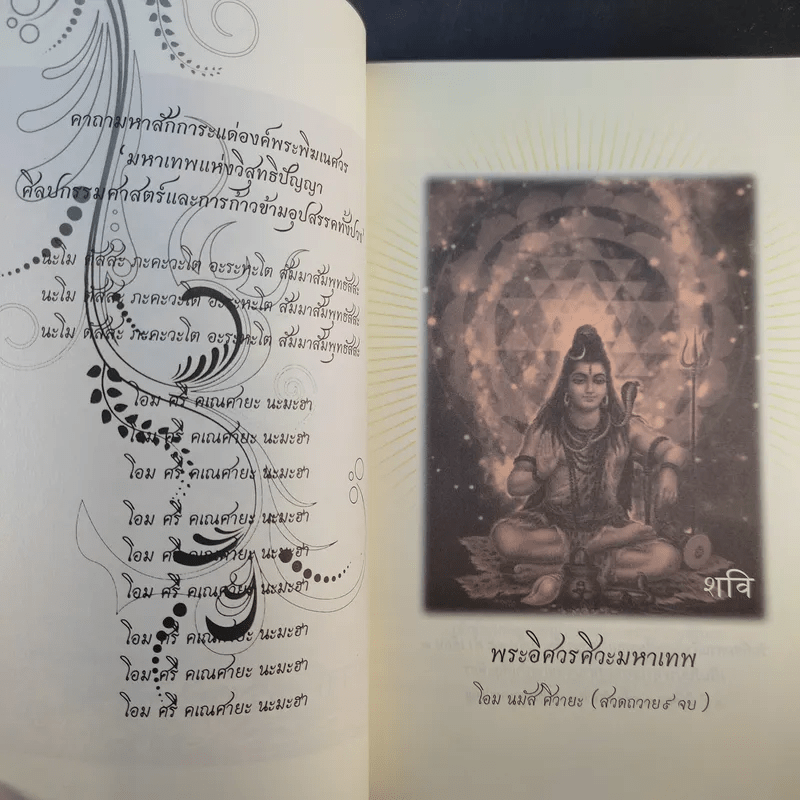 คาถามหาสักการะแด่องค์พระพิฆเนศวร
'มหาเทพแห่งวิสุทธิปัญญา
ศิลปกรรมศาสตร์และการก้าวข้ามอุปสรรคทั้งปวง'
นะโม ตัสสะ ภะคะวะโต อะระหะโต สัมมาสัมพุทธัสสะ
นะโม ตัสสะ ภะคะวะโต อะระหะโต สัมมาสัมพุทธัสสะ
นะโม ตัสสะ ภะคะวะโต อะระหะโต สัมมาสัมพุทธัสสะ
โอม ศรี คเณศายะ นะมะฮา
โอม ศรี คเณศายะ นะมะฮา
โอม ศรี คเณศายะ นะมะฮา
โอม ศรี คเณศายะ นะมะฮา
โอม ศรี คเณศายะ นะมะฮา
โอม ศรี คเณศายะ นะมะฮา
โอม ศรี คเณศายะ นะมะฮา
โอม ศรี คเณศายะ นะมะฮา
โอม ศรี คเณศายะ นะมะฮา
शवि
พระอิศวรศิวะมหาเทพ
โอม นมัส ศิวายะ (สวดถวาย๙ จบ)